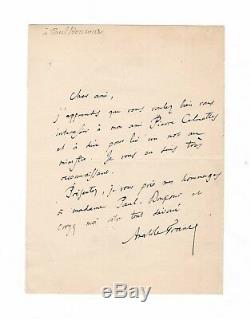 à Paul
Cher ami,
j'apprends que vous voulez bien vous
intéresser à mon ami Pierre
et à dire pour lui un mot au
ministre. Je vous en suis très
reconnaissant.
Présentez, je vous prie mes hommages
à madame Paul et
croyez moi votre tout dévoué
Anatole France